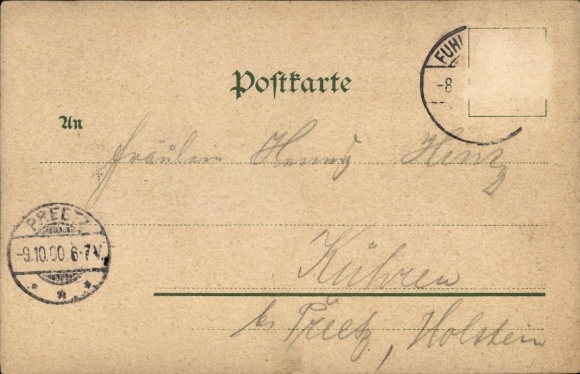 Postkarte
FUHL
-8
An
Fräulein Henny Hinz
PREETZ
-9.10.00 6-7V.
* * *
Kühren
bei Preetz, Holstein